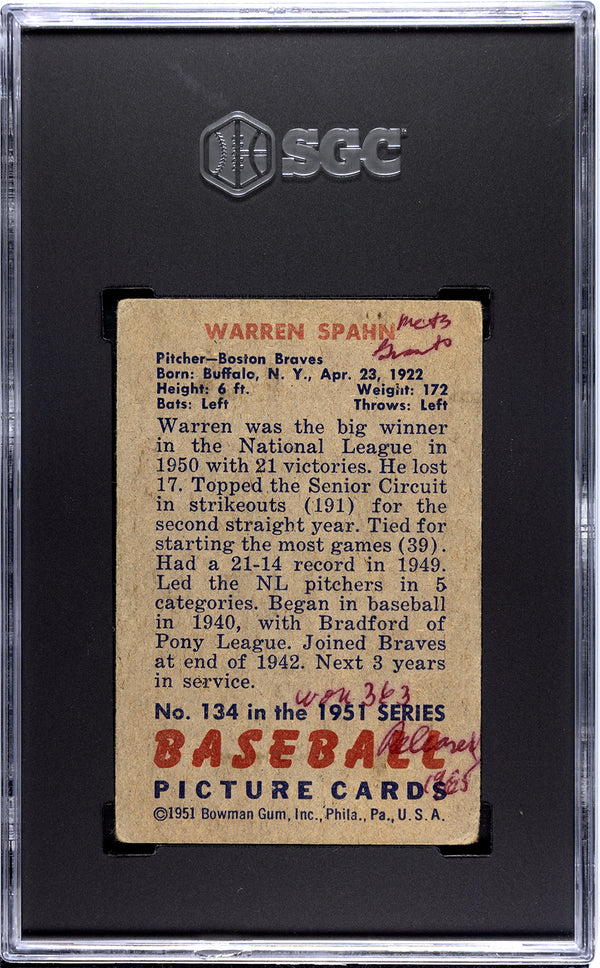 SGC
WARREN SPAHN Mets
Giants
Pitcher—Boston Braves
Born: Buffalo, N. Y., Apr. 23, 1922
Height: 6 ft. Weight: 172
Bats: Left Throws: Left
Warren was the big winner
in the National League in
1950 with 21 victories. He lost
17. Topped the Senior Circuit
in strikeouts (191) for the
second straight year. Tied for
starting the most games (39).
Had a 21-14 record in 1949.
Led the NL pitchers in 5
categories. Began in baseball
in 1940, with Bradford of
Pony League. Joined Braves
at end of 1942. Next 3 years
in service.
won 363
No. 134 in the 1951 SERIES
Released
BASEBALL
1965
PICTURE CARDS
©1951 Bowman Gum, Inc., Phila., Pa., U. S. A.